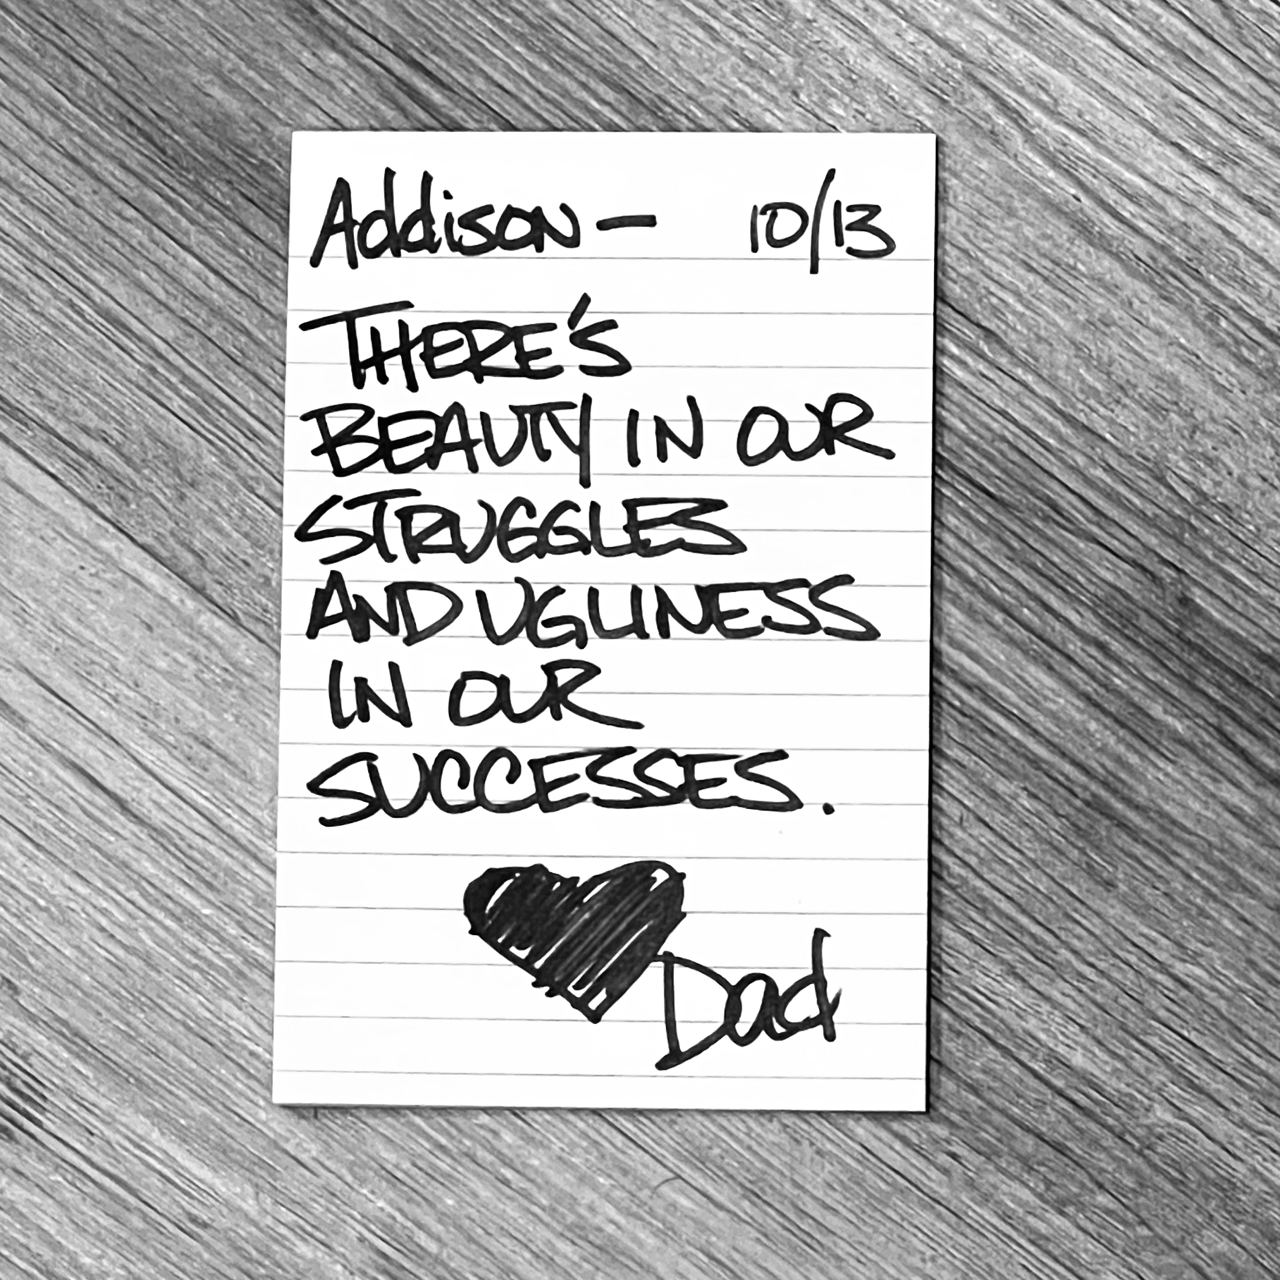 Addison— 10/13
THERE'S
BEAUTY IN OUR
STRUGGLES
AND UGLINESS
IN OUR
SUCCESSES.
Dad